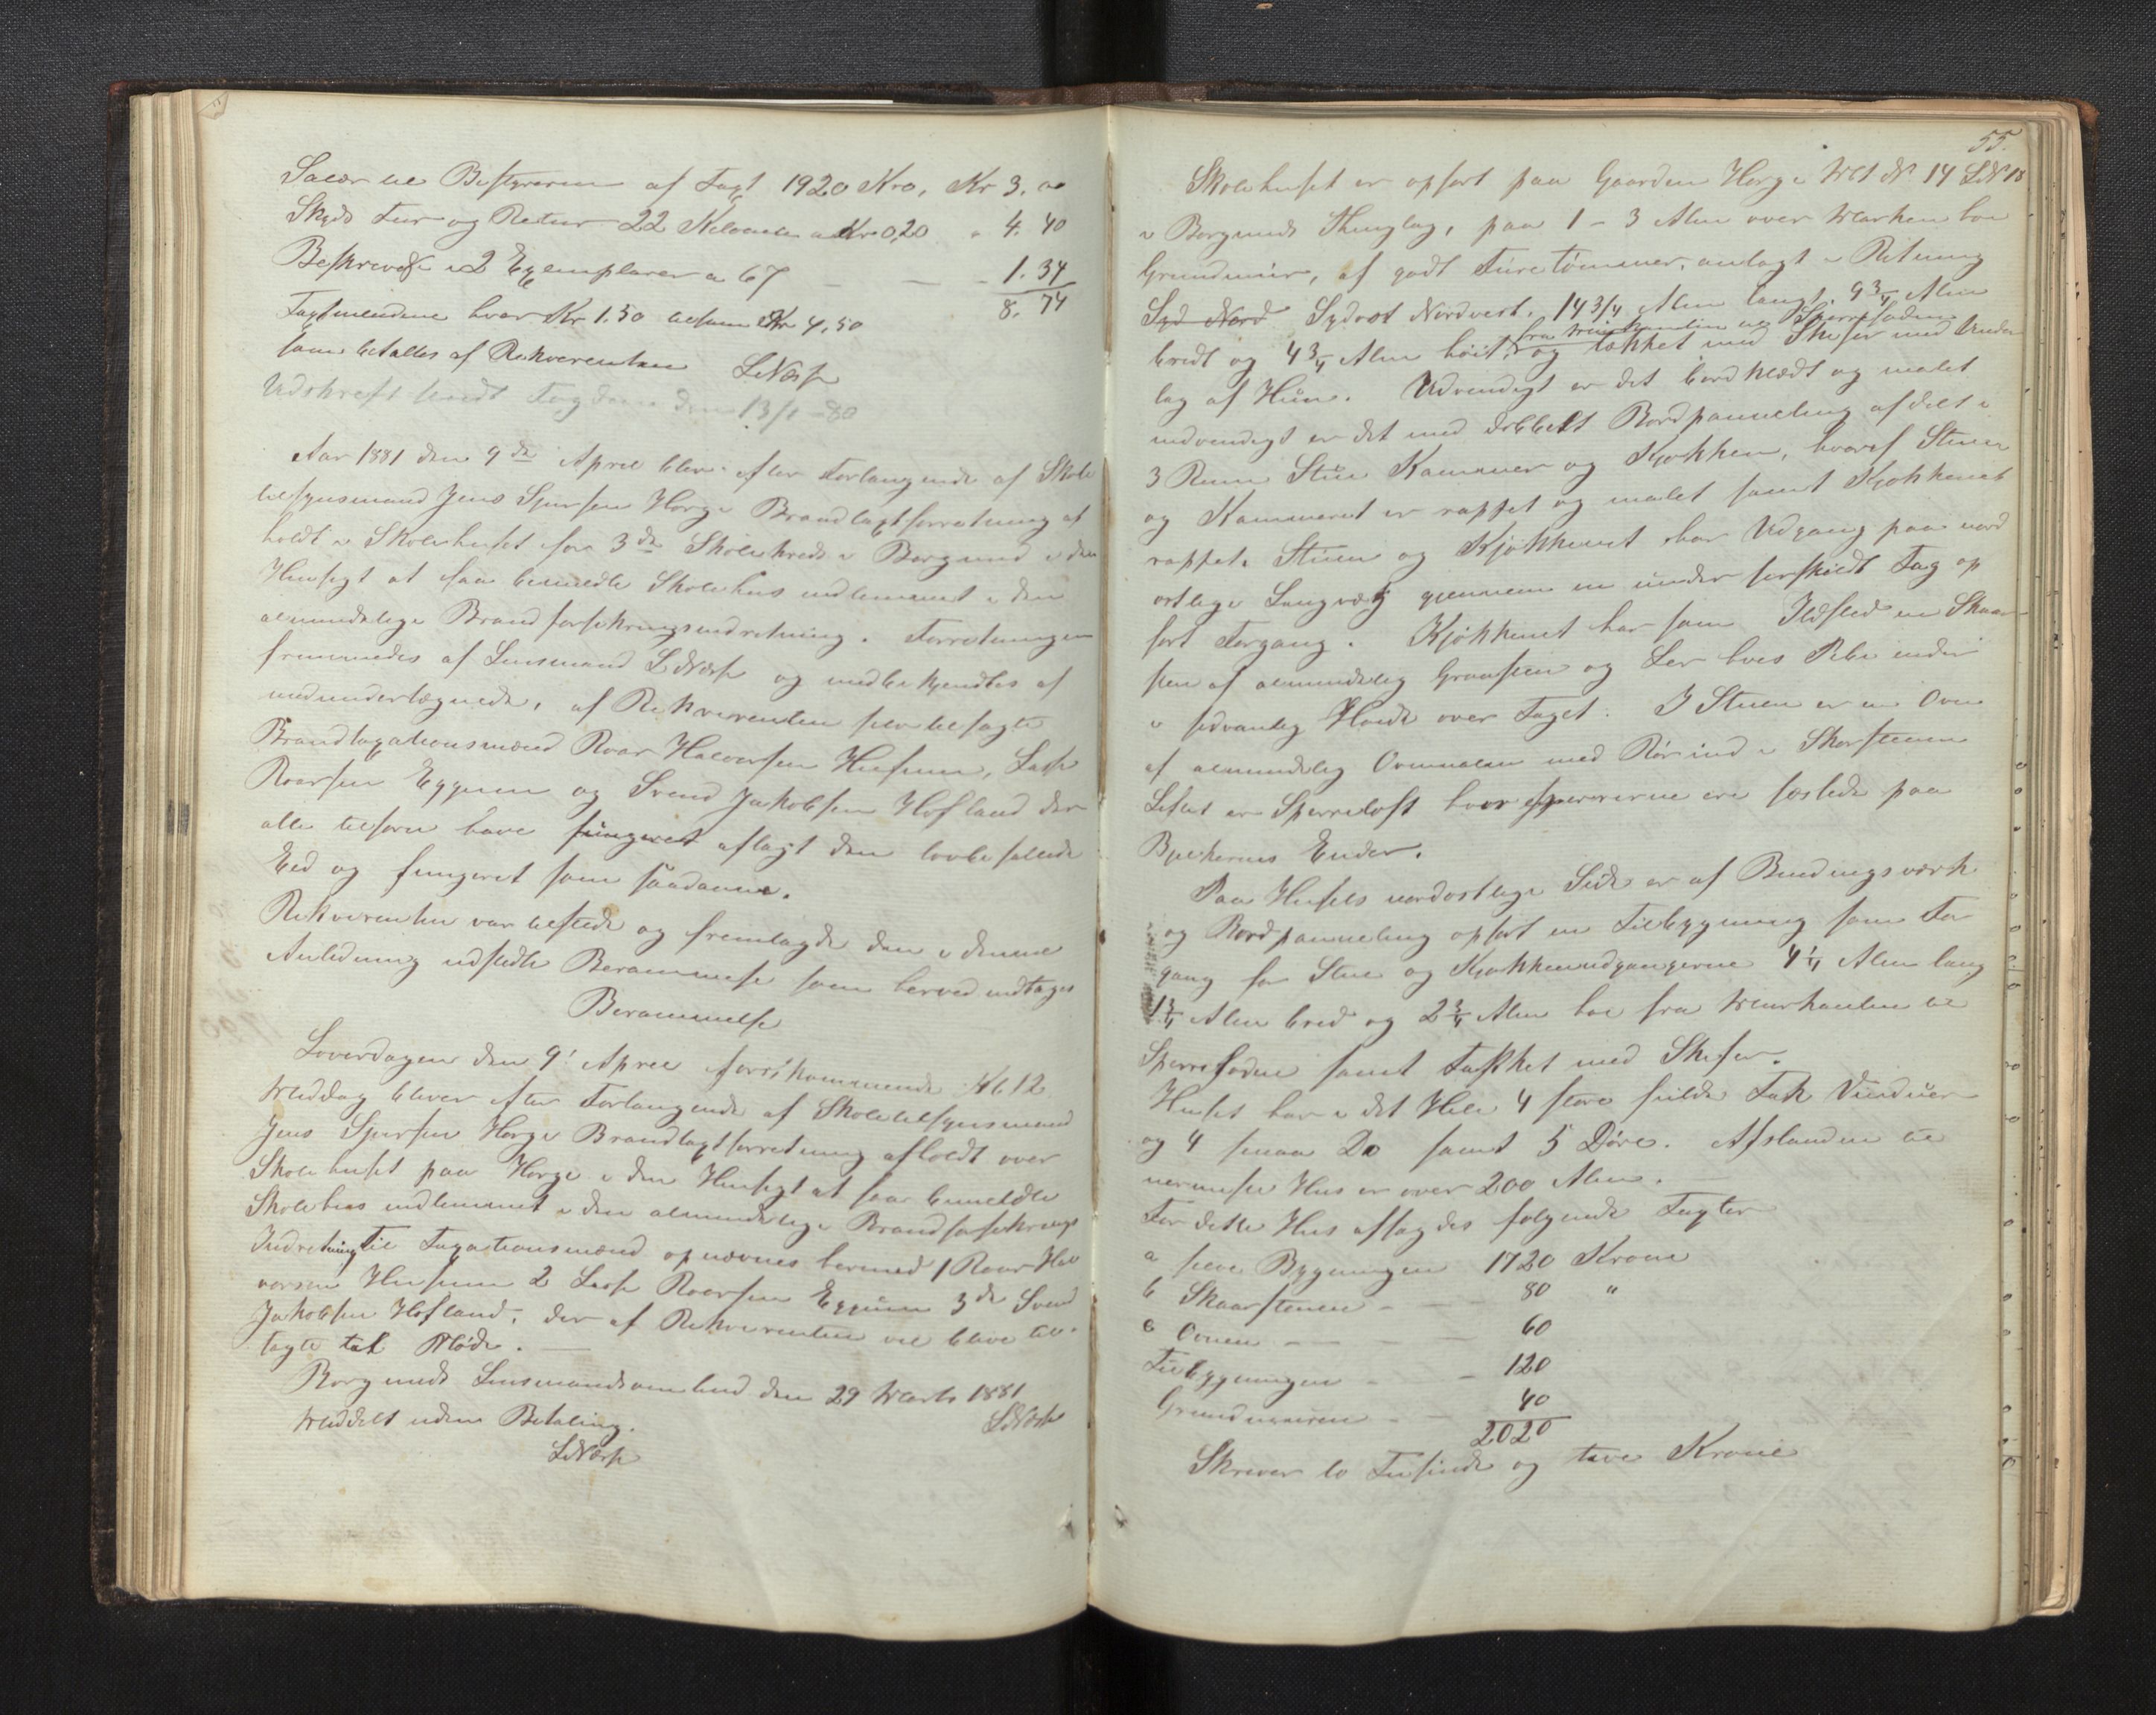 Salær til Bestyreren af Taxt 1920 Kro, Kr 3. 00
Skyds Tur og Retur 22 Kilometer a Kr 0,20 " 4. 40
Beskrivelse i 2 Exemplarer a 67 - - - 1. 34
8. 74
Taxtmendene hver Kr 1.50 tilsam Kr 4,50
som betalles af Rekverenten LNæss
Udskreft sendt Fogden den 13/1 - 80
Aar 1881 den 9de April blev efter Forlangende af Skole
tilsynsmand Jens Sjursen Horge Brandtaxtforretning af
holdt i Skolehuset for 3de Skolekreds i Borgund i den
Hensigt at faa bemeldte Skolehus indlemmet i den
almindelige Brandforsekringsindretning. Forretningen
fremmedes af Lensmand LNæss og medbekjendtes af
medundertegnede, af Rekverenten selv tilsagte
Brandtaxationsmænd Roar Halvorsen Husum, Lasse
Roarsen Eggum og Svend Jakobsen Hofland der
alle tilforn have fungeret aflagt den lovbefallede
Eed og fungeret som saadanne.
Rekverenten var tilstede og fremlagde den i denne
Anledning udstedte Berammelse som herved indtages
Berammelse
Løverdagen den 9' April førstkommende Kl. 12
Middag bliver efter Forlangende af Skoletilsynsmand
Jens Sjursen Horge Brandtaxtforretning afholdt over
Skolehuset paa Horge i den Hensigt at faa bemeldte
Skolehus indlemmet i den almindelige Brandforsekrings
Indretning Til Taxationsmænd opnævnes hermed 1 Roar Hal
vorsen Husum 2 Lasse Roarsen Eggum 3de Svend
Jakobsen Hofland, der af Rekverenten vil blive til-
sagte til Møde. —
Borgunds Lensmandsombud den 29 Marts 1881
LNæss
Meddelt uden Betaling.
LNæss
55.
Skolehuset er opført paa Gaarden Horge Mt No 14 LNo 18
i Borgunds Thinglag, paa 1 - 3 Alen over Marken høi
Grundmúr, af godt Fúretømmer, anlagt i Retning
Syd Nord Sydost Nordvest. 14 3/4 Alen langt, 9 3/4 Alen
fra Múrkanten til Sperrefoden
bredt og 4 3/4 Alen høit, og tækket med Skifer med Under
lag af Hún. Udvendigt er det bordklædt og malet
indvendigt er det med dobbelt Bordpanneling afdelt i
3 Rum Stúe Kammer og Kjøkken, hvoraf Stuen
og Kammeret er rappet og malet samt Kjøkkenet
rappet. Stúen og Kjøkkenet har Udgang paa nord
ostlige Langvæg gjennem en únder serskildt Tag op
ført Forgang. Kjøkkenet har som Ildsted en Skaar
sten af almindelig Graasten og Ler hvis Pibe ender
i sedvanlig Høide over Taget. I Stuen er en Ovn
af almindelig Ovnmalm med Rør ind i Skorstenen
Loftet er Sperreloft hvor sperrerne ere festede paa
Bjelkernes Ender.
Paa Husets nordostlige Side er af Bindingsværk
og Bordpanneling opført en Tilbygning som For
gang for Stue og Kjøkkenudgangerne 4 1/4 Alen lang
1 3/4 Alen bred og 2 3/4 Alen høi fra Múrkanten til
Sperrefoden samt Tækket med Skifer.
Huset har i det Hele 4 store fulde Fak Vinduer
og 4 smaa Do samt 5 Døre. Afstanden til
nermeste Hus er over 200 Alen.
For dette Hus aflagdes følgende Taxter
a selve Bygningen 1720 Krone
b Skaarstenen - - - 80 "
c Ovnen — - - — 60
Tilbygningen - - 120
Grundmuren - - 40
2020
Skriver to Tusinde og tive Krone